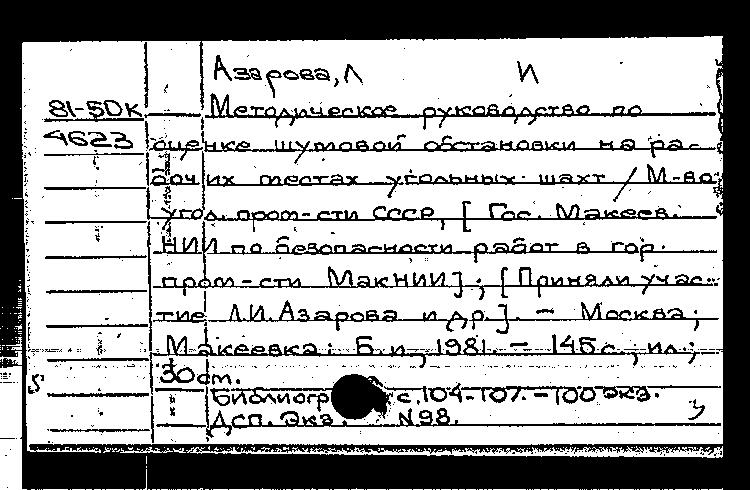 Азарова, Л И
81-5DK Методическое руководство по
4623 оценке шумовой обстановки на ра-
бочих местах угольных шахт / М-во
угол. пром-сти СССР, [ Гос. Макеев.
НИИ по безопасности работ в гор.
пром-сти МакНИИ] ; [ Приняли учас-
тие Л.И. Азарова и др.]. - Москва ;
Макеевка : Б. и., 1981. - 145 с., ил. ;
30 cm.
Библиогр с. 104-107. - 100 экз.
Дсп. Экз. N 98.